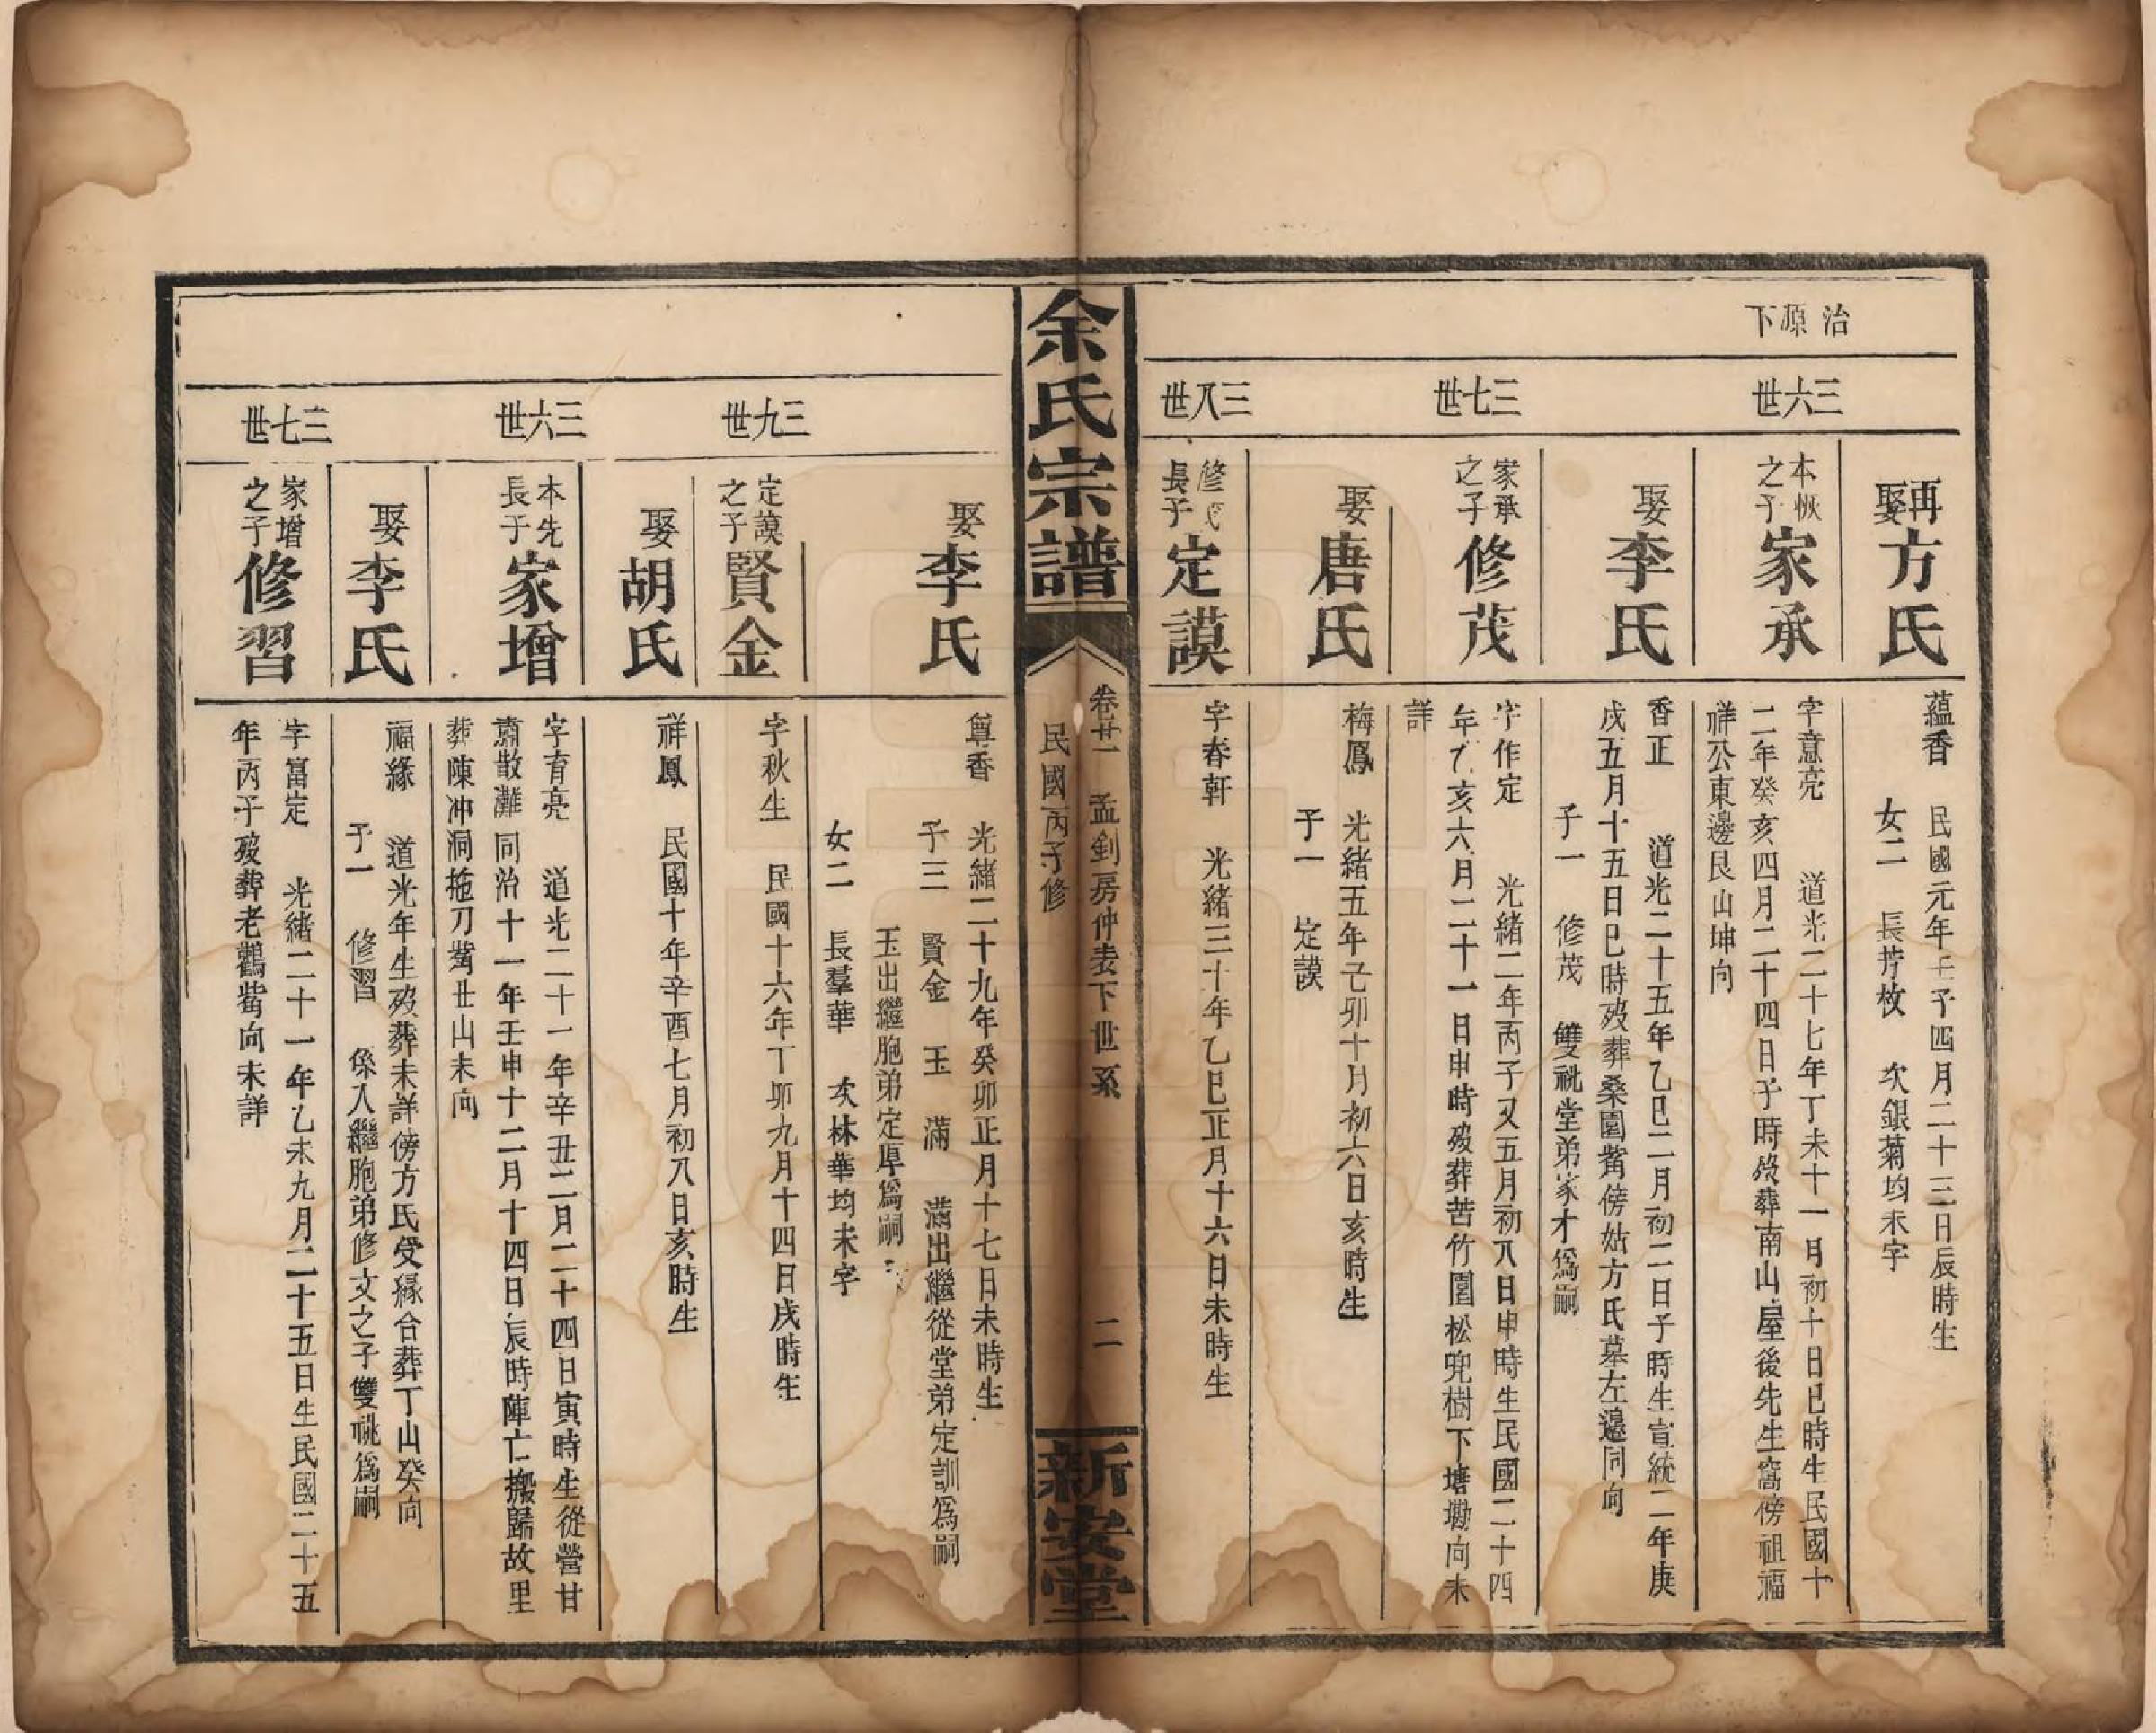 治
源
下
三六世
三七世
三八世
再娶
方氏
蘊香　民國元年壬子四月二十三日辰時生
女二　長芋枚　次銀菊均未字
本恢
之子
家承
字意亮　道光二十七年丁未十一月初十日巳時生民國十
二年癸亥四月二十四日子時歿葬南山屋後先生窩傍祖福
祥公東邊艮山坤向
娶
李氏
香正　道光二十五年乙巳二月初二日子時生宣統二年庚
戌五月十五日巳時歿葬桑園觜傍姑方氏墓左邊同向
子一　修茂　雙祧堂弟家才爲嗣
家承
之子
修茂
字作定　光緒二年丙子又五月初八日申時生民國二十四
年乙亥六月二十一日申時歿葬苦竹園松兜樹下塘墈向未
詳
娶
唐氏
梅鳳　光緒五年己卯十月初六日亥時生
子一　定謨
修茂
長子
定謨
字春軒　光緒三十年乙巳正月十六日未時生
余氏宗譜
卷廿一　孟釗房仲表下世系　二
民國丙子修
新安堂
三九世
三六世
三七世
娶
李氏
尊香　光緒二十九年癸卯正月十七日未時生
子三　賢金　玉　滿　滿出繼從堂弟定訓爲嗣
玉出繼胞弟定厚爲嗣
女二　長羣華　次林華均未字
定謨
之子
賢金
字秋生　民國十六年丁卯九月十四日戌時生
娶
胡氏
祥鳳　民國十年辛酉七月初八日亥時生
本先
長子
家增
字育亮　道光二十一年辛丑二月二十四日寅時生從營甘
肅散灘同治十一年壬申十二月十四日辰時陣亡搬歸故里
葬陳冲洞拖刀觜丑山未向
娶
李氏
福緣　道光年生歿葬未詳傍方氏受緣合葬丁山癸向
子一　修習　係入繼胞弟修文之子雙祧爲嗣
家增
之子
修習
字富定　光緒二十一年乙未九月二十五日生民國二十五
年丙子歿葬老鸛觜向未詳